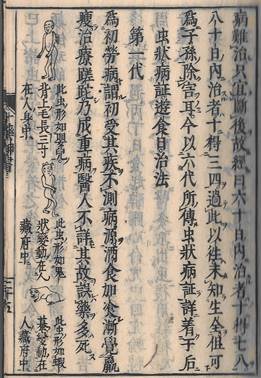 病難治只宜斷後故經曰六十日内治者十得七八
八十日内治者十得三四過此以往未知生全但可
爲子孫除害耳今以六代所傳虫狀病証詳着于后
虫狀病証遊食日治法
第一代
爲初勞病謂初受其疾不測病源酒食加飡漸覺羸
瘦治療蹉跎乃成重病醫人不詳其故誤藥多死
此虫形如嬰兒
背上毛長三寸
在人身中
此虫形如鬼
狀變動在人
臟府中
此虫形如蝦
蟇變動在
人臟府中